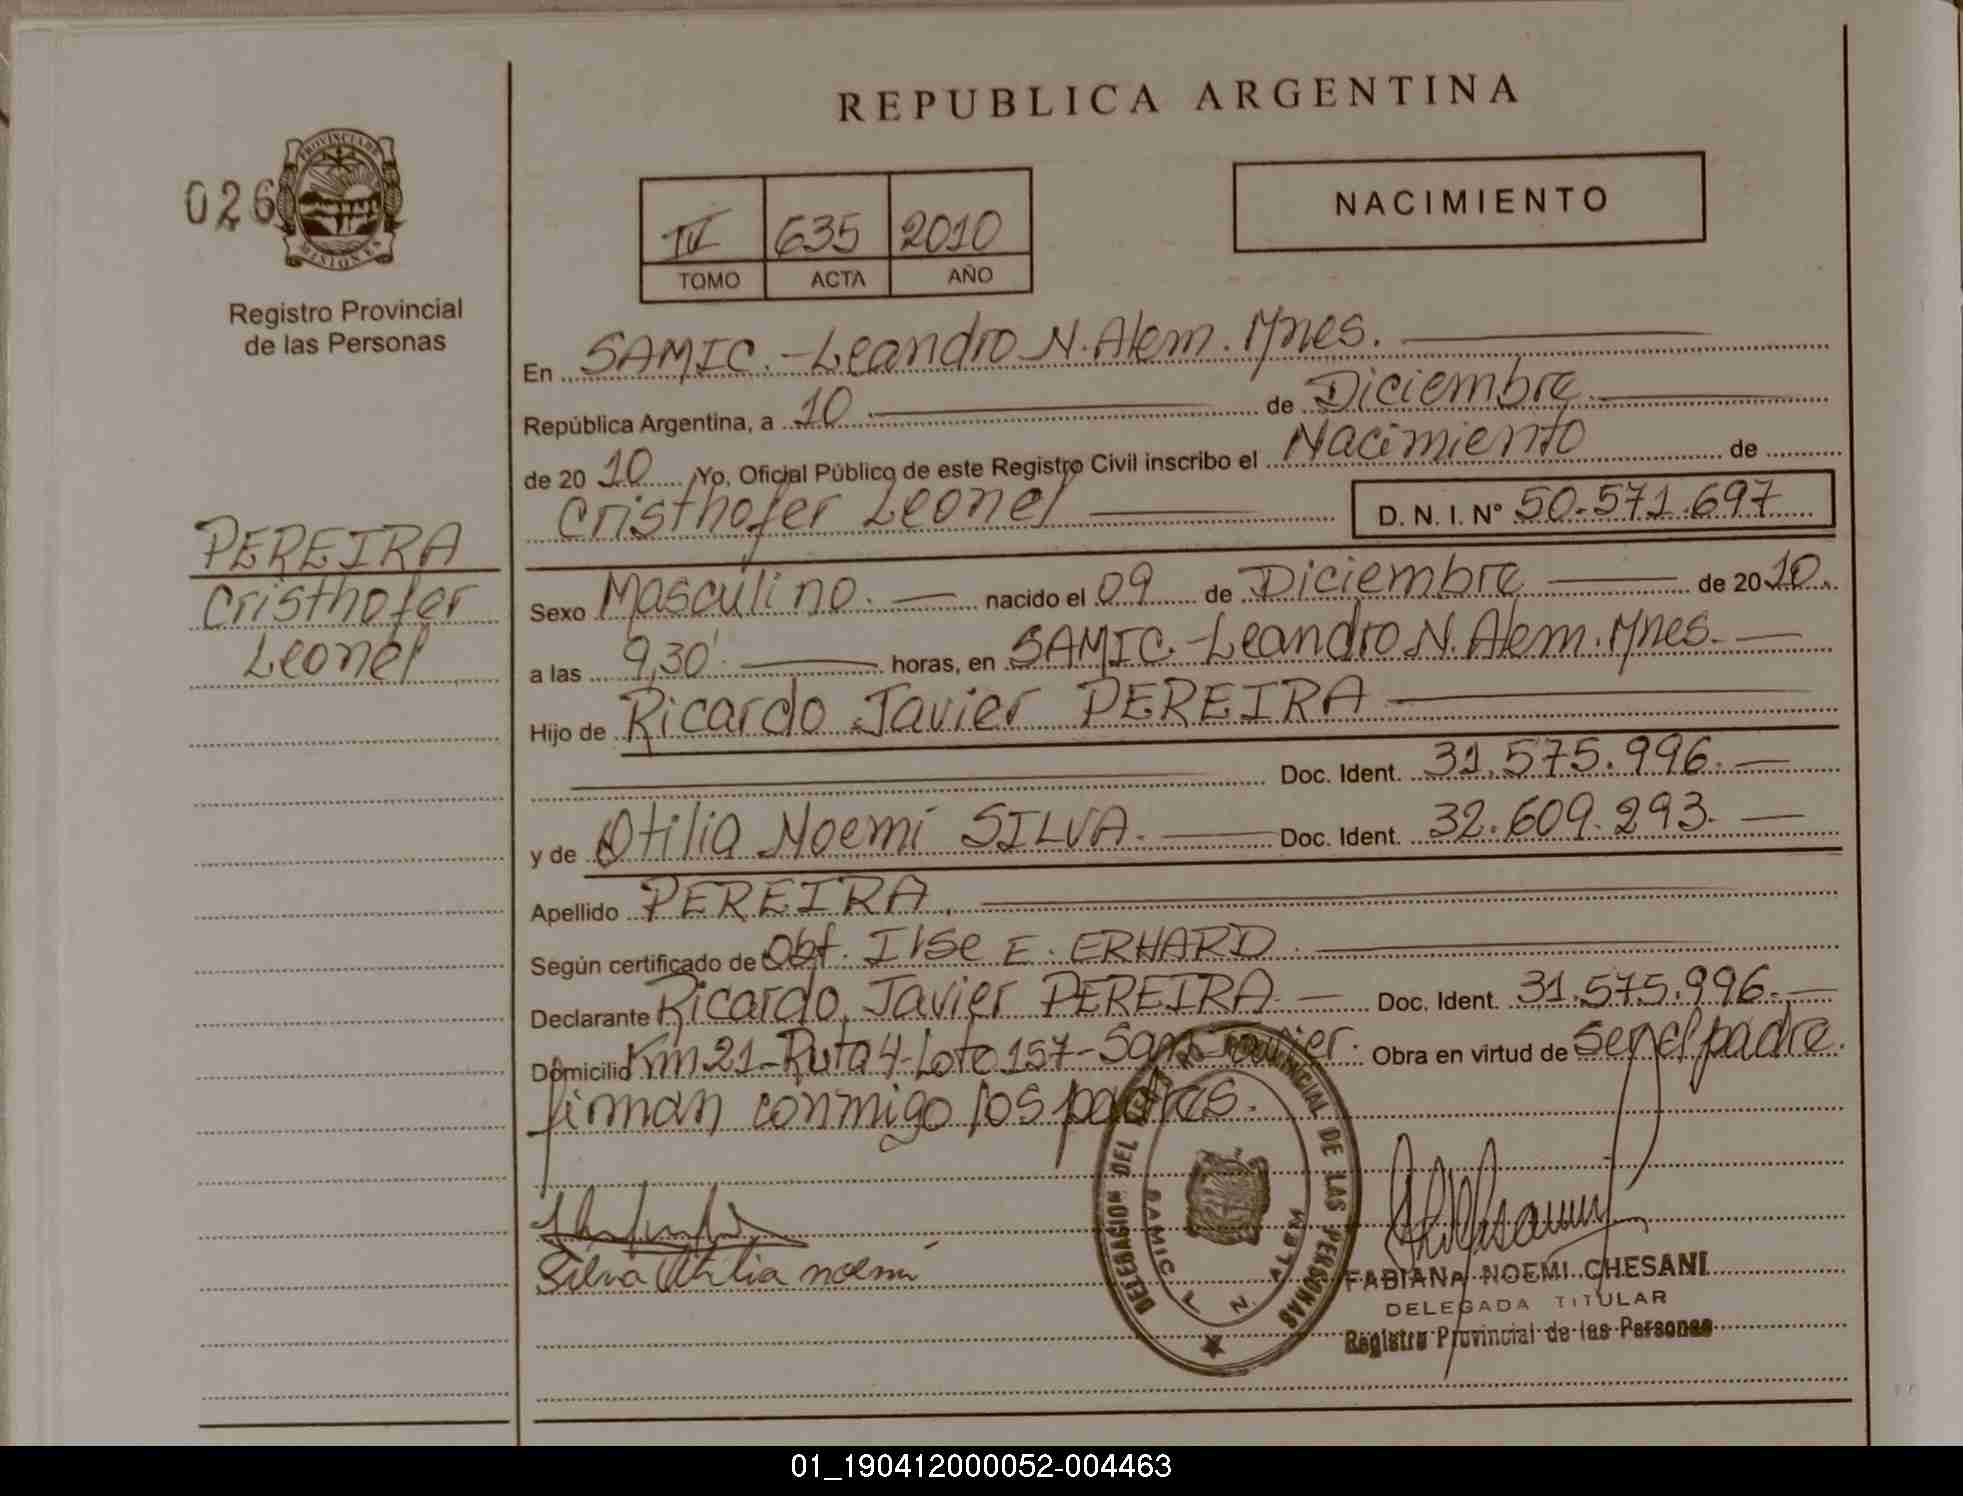 REPUBLICA ARGENTINA
026
PROVINCIA DE
MISIONES
Registro Provincial
de las Personas
NACIMIENTO
IV 635 2010
TOMO ACTA AÑO
En SAMIC.-Leandro N. Alem. Mnes.
República Argentina, a 10 de Diciembre.
de 20 10 Yo, Oficial Público de este Registro Civil inscribo el Nacimiento de
Cristhofer Leonel D. N. I. N° 50.571.697
PEREIRA
Cristhofer
Leonel
Sexo Masculino. nacido el 09 de Diciembre de 20 10.
a las 9,30' horas, en SAMIC.-Leandro N. Alem. Mnes.
Hijo de Ricardo Javier PEREIRA
Doc. Ident. 31.575.996.
y de Otilia Noemi SILVA. Doc. Ident. 32.609.293.
Apellido PEREIRA.
Según certificado de Obt. Ilse E. ERHARD.
Declarante Ricardo Javier PEREIRA. Doc. Ident. 31.575.996.
Domicilio Km 21-Ruta 4-Lote 157-San Javier. Obra en virtud de ser el padre.
firman conmigo los padres.
Silva Otilia noemi
DELEGACION DEL REGISTRO PROVINCIAL DE LAS PERSONAS
SAMIC L. N. ALEM
FABIANA NOEMI CHESANI
DELEGADA TITULAR
Registro Provincial de las Personas
01_190412000052-004463